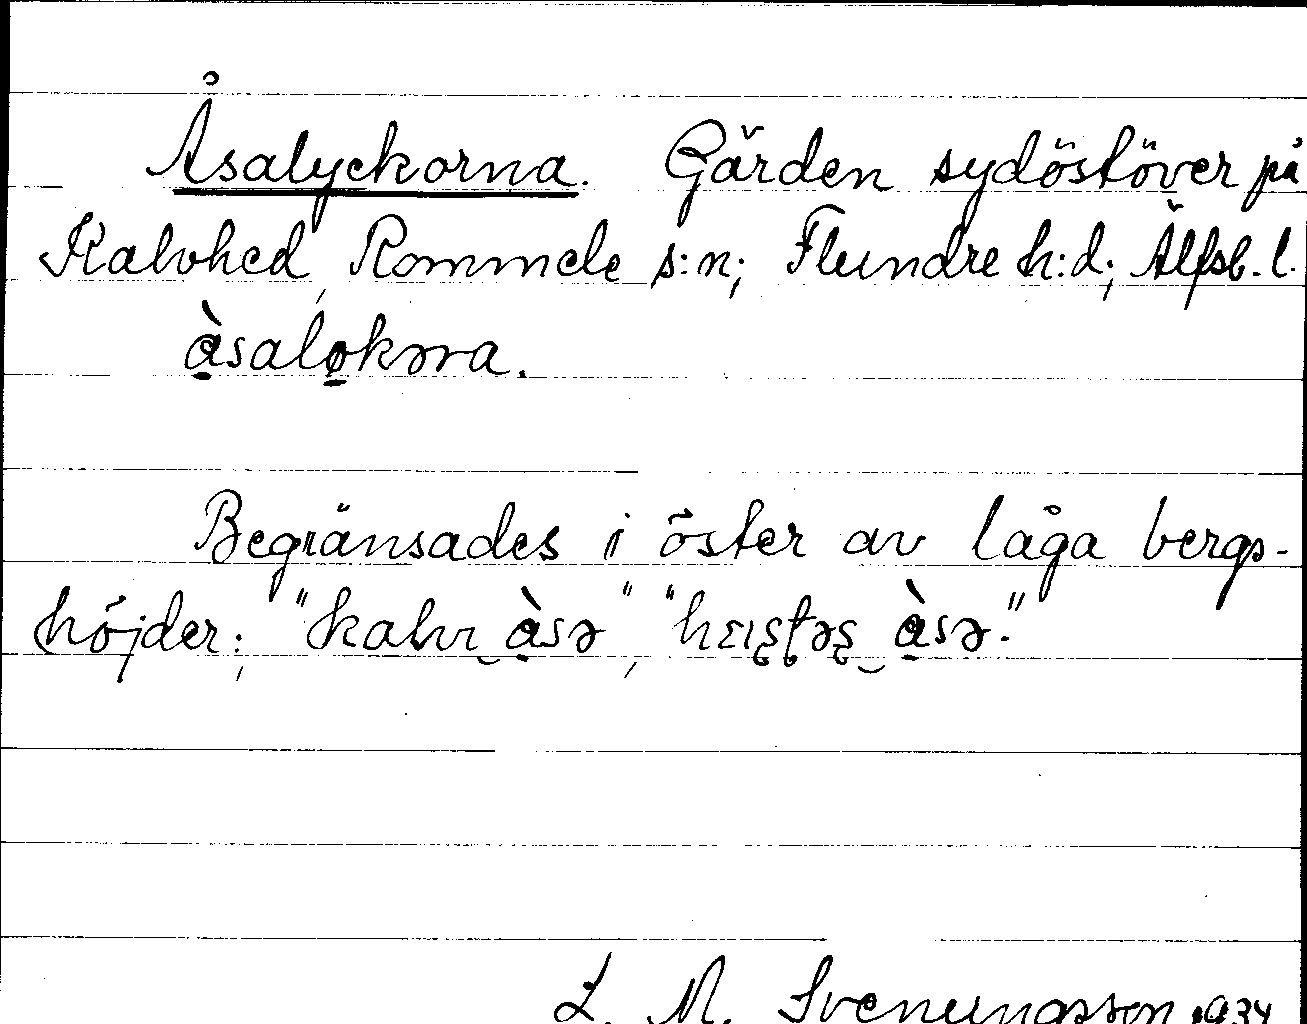 Åsalyckorna. Gärden sydöstöver på
Kalvhed, Rommele s:n; Flundre h:d; Älfsb. l.
ɑ̱̀salø̱kɔrna.
Begränsades i öster av låga bergs-
höjder; "kalvɪ‿ɑ̱̀sə", "hɛɪʂʈəʂ‿ɑ̱̀sə."
L. M. Svenungsson 1934